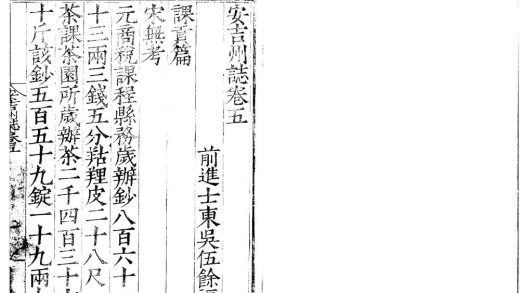 安吉州誌卷五
前進士東吳伍餘
課貢篇
宋無考
元商稅課程縣務歲辦鈔八百六十
十三兩三錢五分羖羊皮二十八尺
茶課茶園所歲辦茶二千四百三十
十斤該鈔五百五十九錠一十九兩